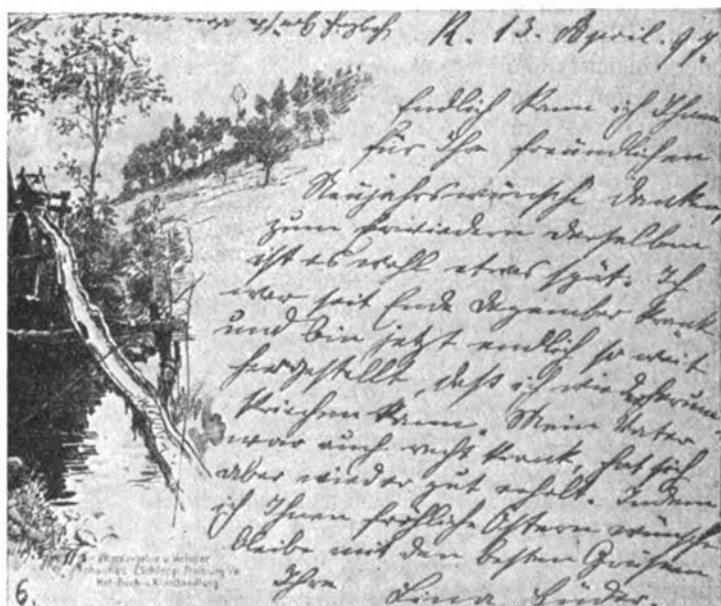 R. 13. April. 97.
Endlich kann ich Ihnen
für Ihre freundlichen
Neujahrswünsche danken,
zum Erwiedern derselben
ist es wohl etwas spät. Ich
war seit Ende Dezember krank
und bin jetzt endlich so weit
hergestellt, daß ich wieder herum
kriechen kann. Mein Vater
war auch recht krank, hat sich
aber wieder gut erholt. Indem
ich Ihnen fröhliche Ostern wünsche
bleibe mit den besten Grüßen
Ihre Lina
Johannes Elchlepp, Freiburg i/B.
Hof-Buch- u. Kunsthandlung
6.